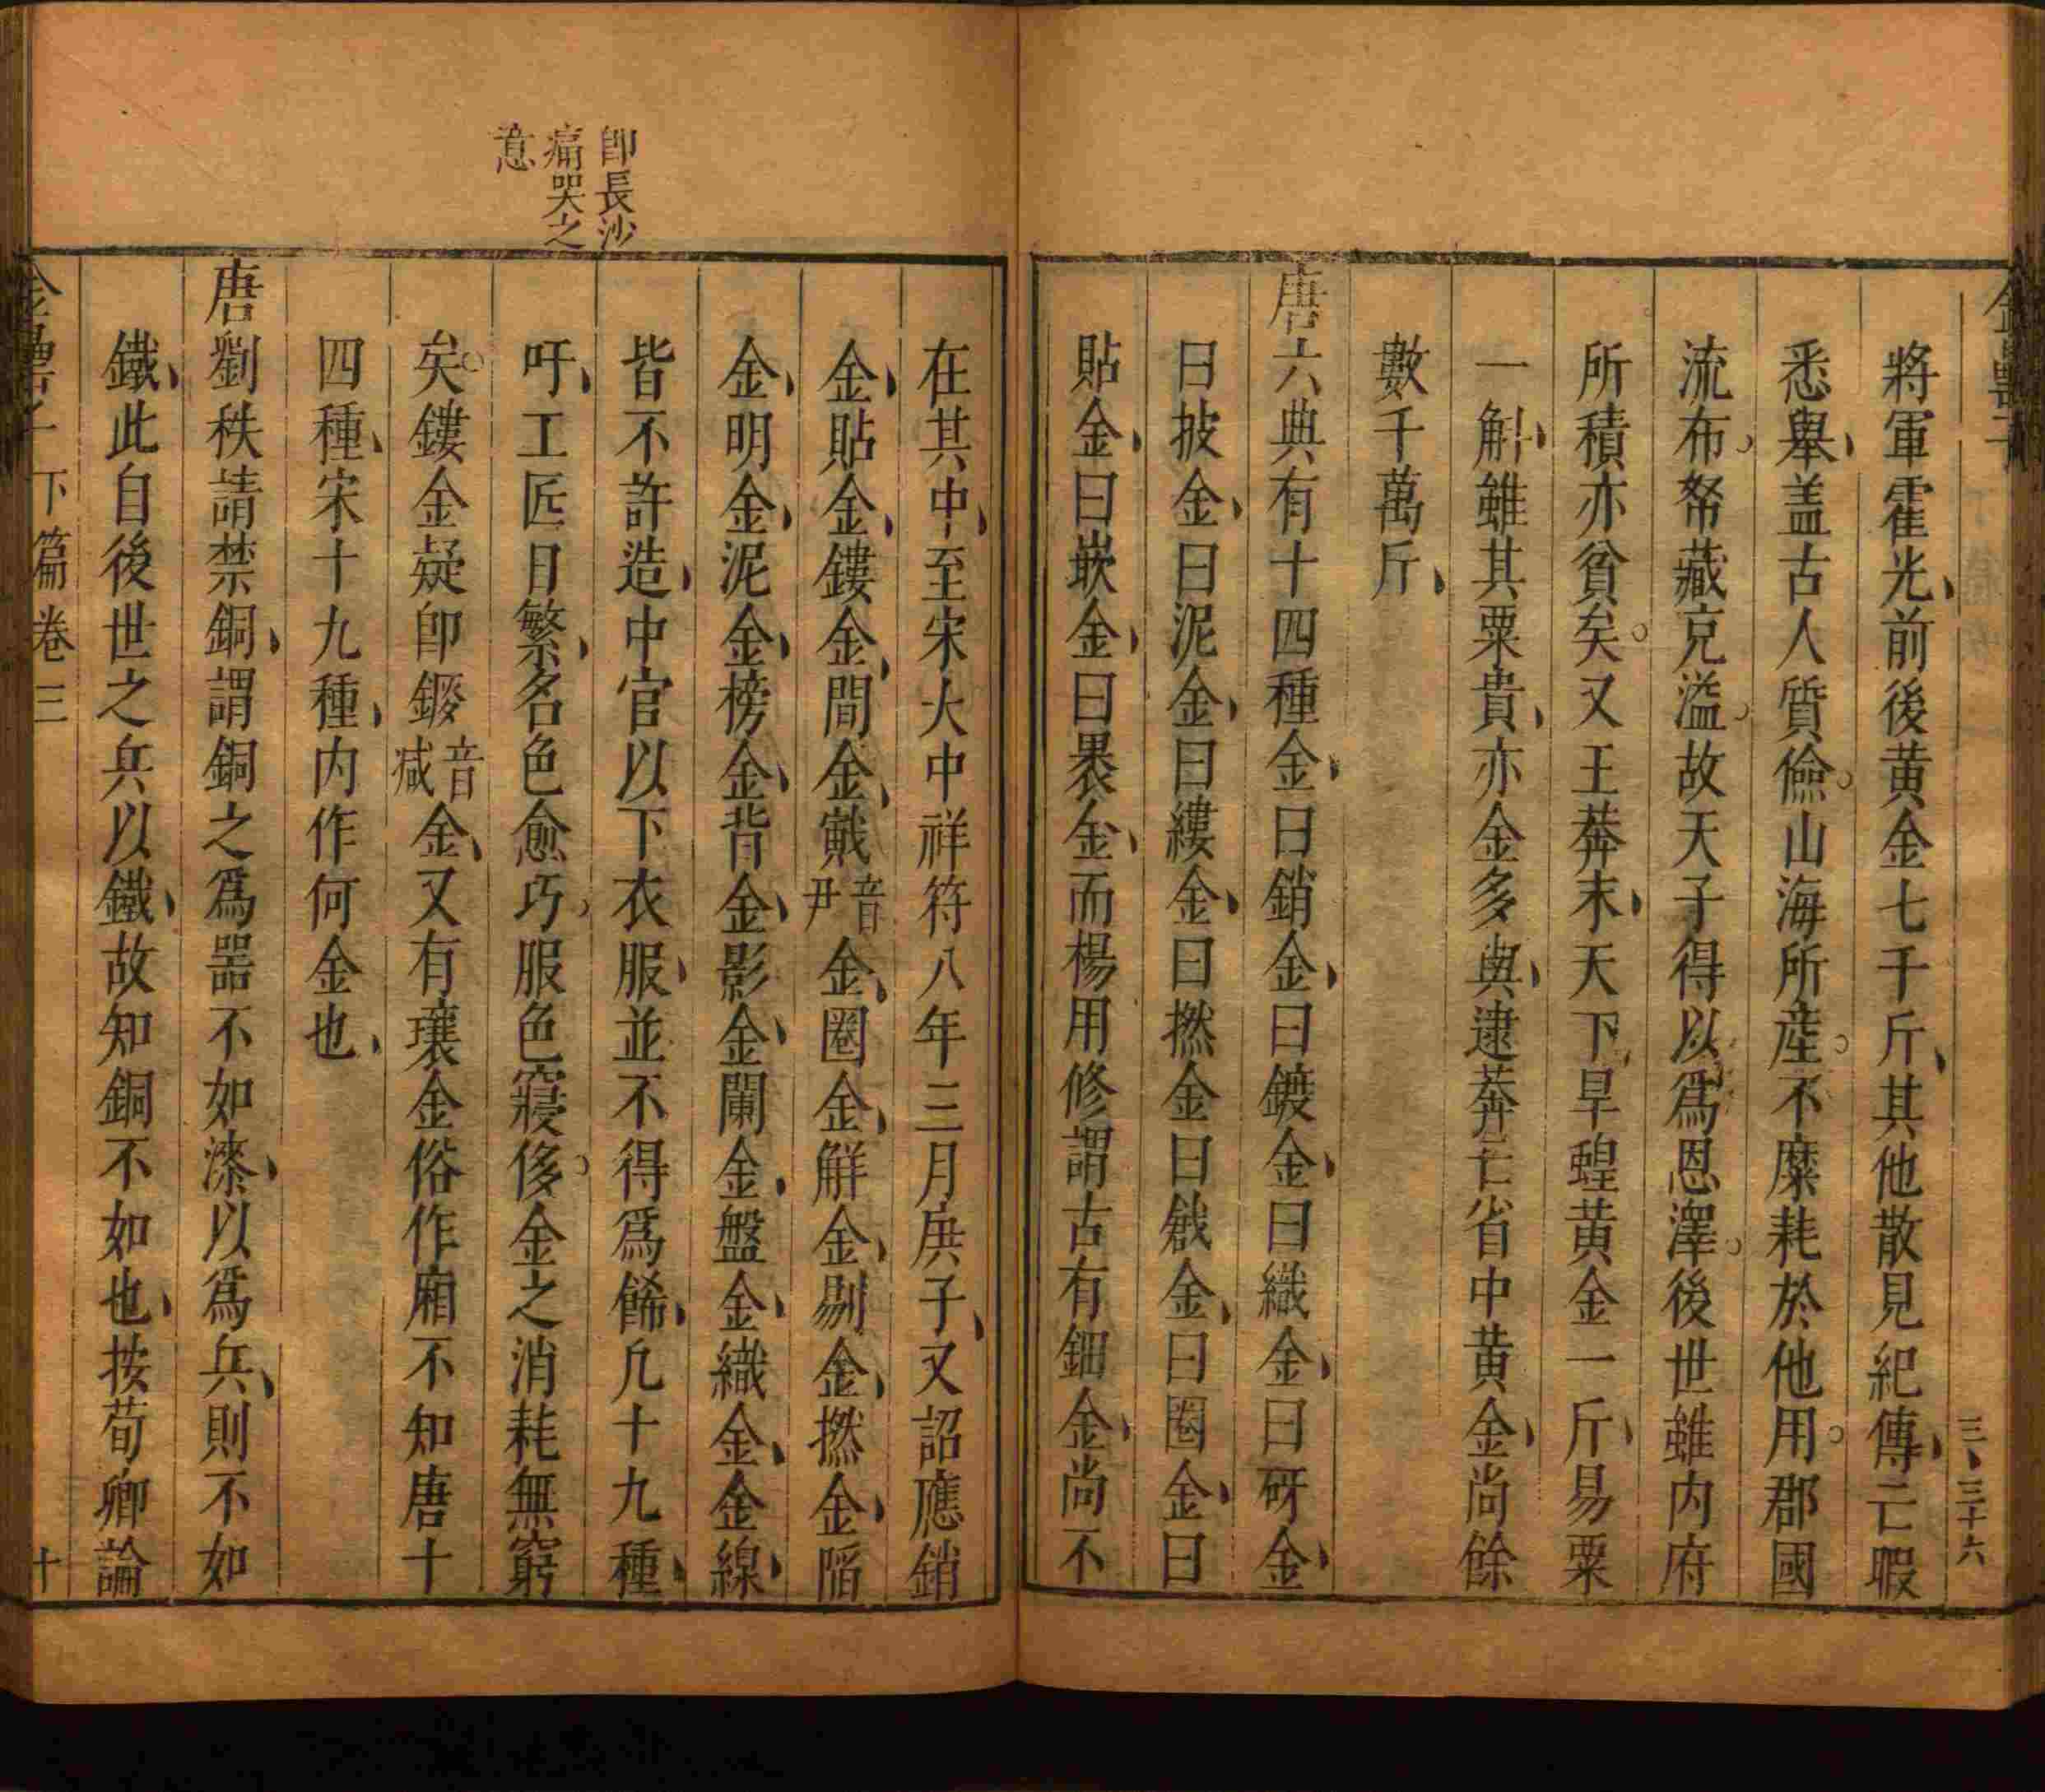 三、三十六
將軍霍光、前後黄金七千斤、其他散見紀傳、亡暇
悉舉、盖古人質儉。山海所産。不糜耗於他用。郡國
流布。帑藏充溢。故天子得以爲恩澤。後世雖内府
所積亦貧矣。又王莽末、天下旱蝗黄金一斤、易粟
一斛、雖其粟貴、亦金多與、逮莽亡省中黄金、尚餘
數千萬斤、
唐六典有十四種金、曰銷金、曰鍍金、曰織金、曰砑金、
曰披金、曰泥金、曰縷金、曰撚金曰戧金、曰圈金、曰
貼金、曰嵌金、曰裹金、而楊用修謂古有鈿金、尚不
即長沙
痛哭之
意
在其中、至宋大中祥符八年三月庚子、又詔應銷
金、貼金、鏤金、間金、戭音尹金、圈金、解金、剔金、撚金、陷
金、明金、泥金、榜金、背金、影金、闌金、盤金、織金、金線、
皆不許造、中官以下衣服、並不得爲餙、凢十九種、
吁、工匠目繁、名色愈巧。服色寖侈。金之消耗無窮
矣。鏤金疑卽鋄音减金、又有瓖金俗作廂不知唐十
四種、宋十九種、内作何金也、
唐劉秩請禁銅、謂銅之爲噐不如漆、以爲兵、則不如
鐵、此自後世之兵以鐵、故知銅不如也、按荀卿論
金罍子 下篇卷三
十